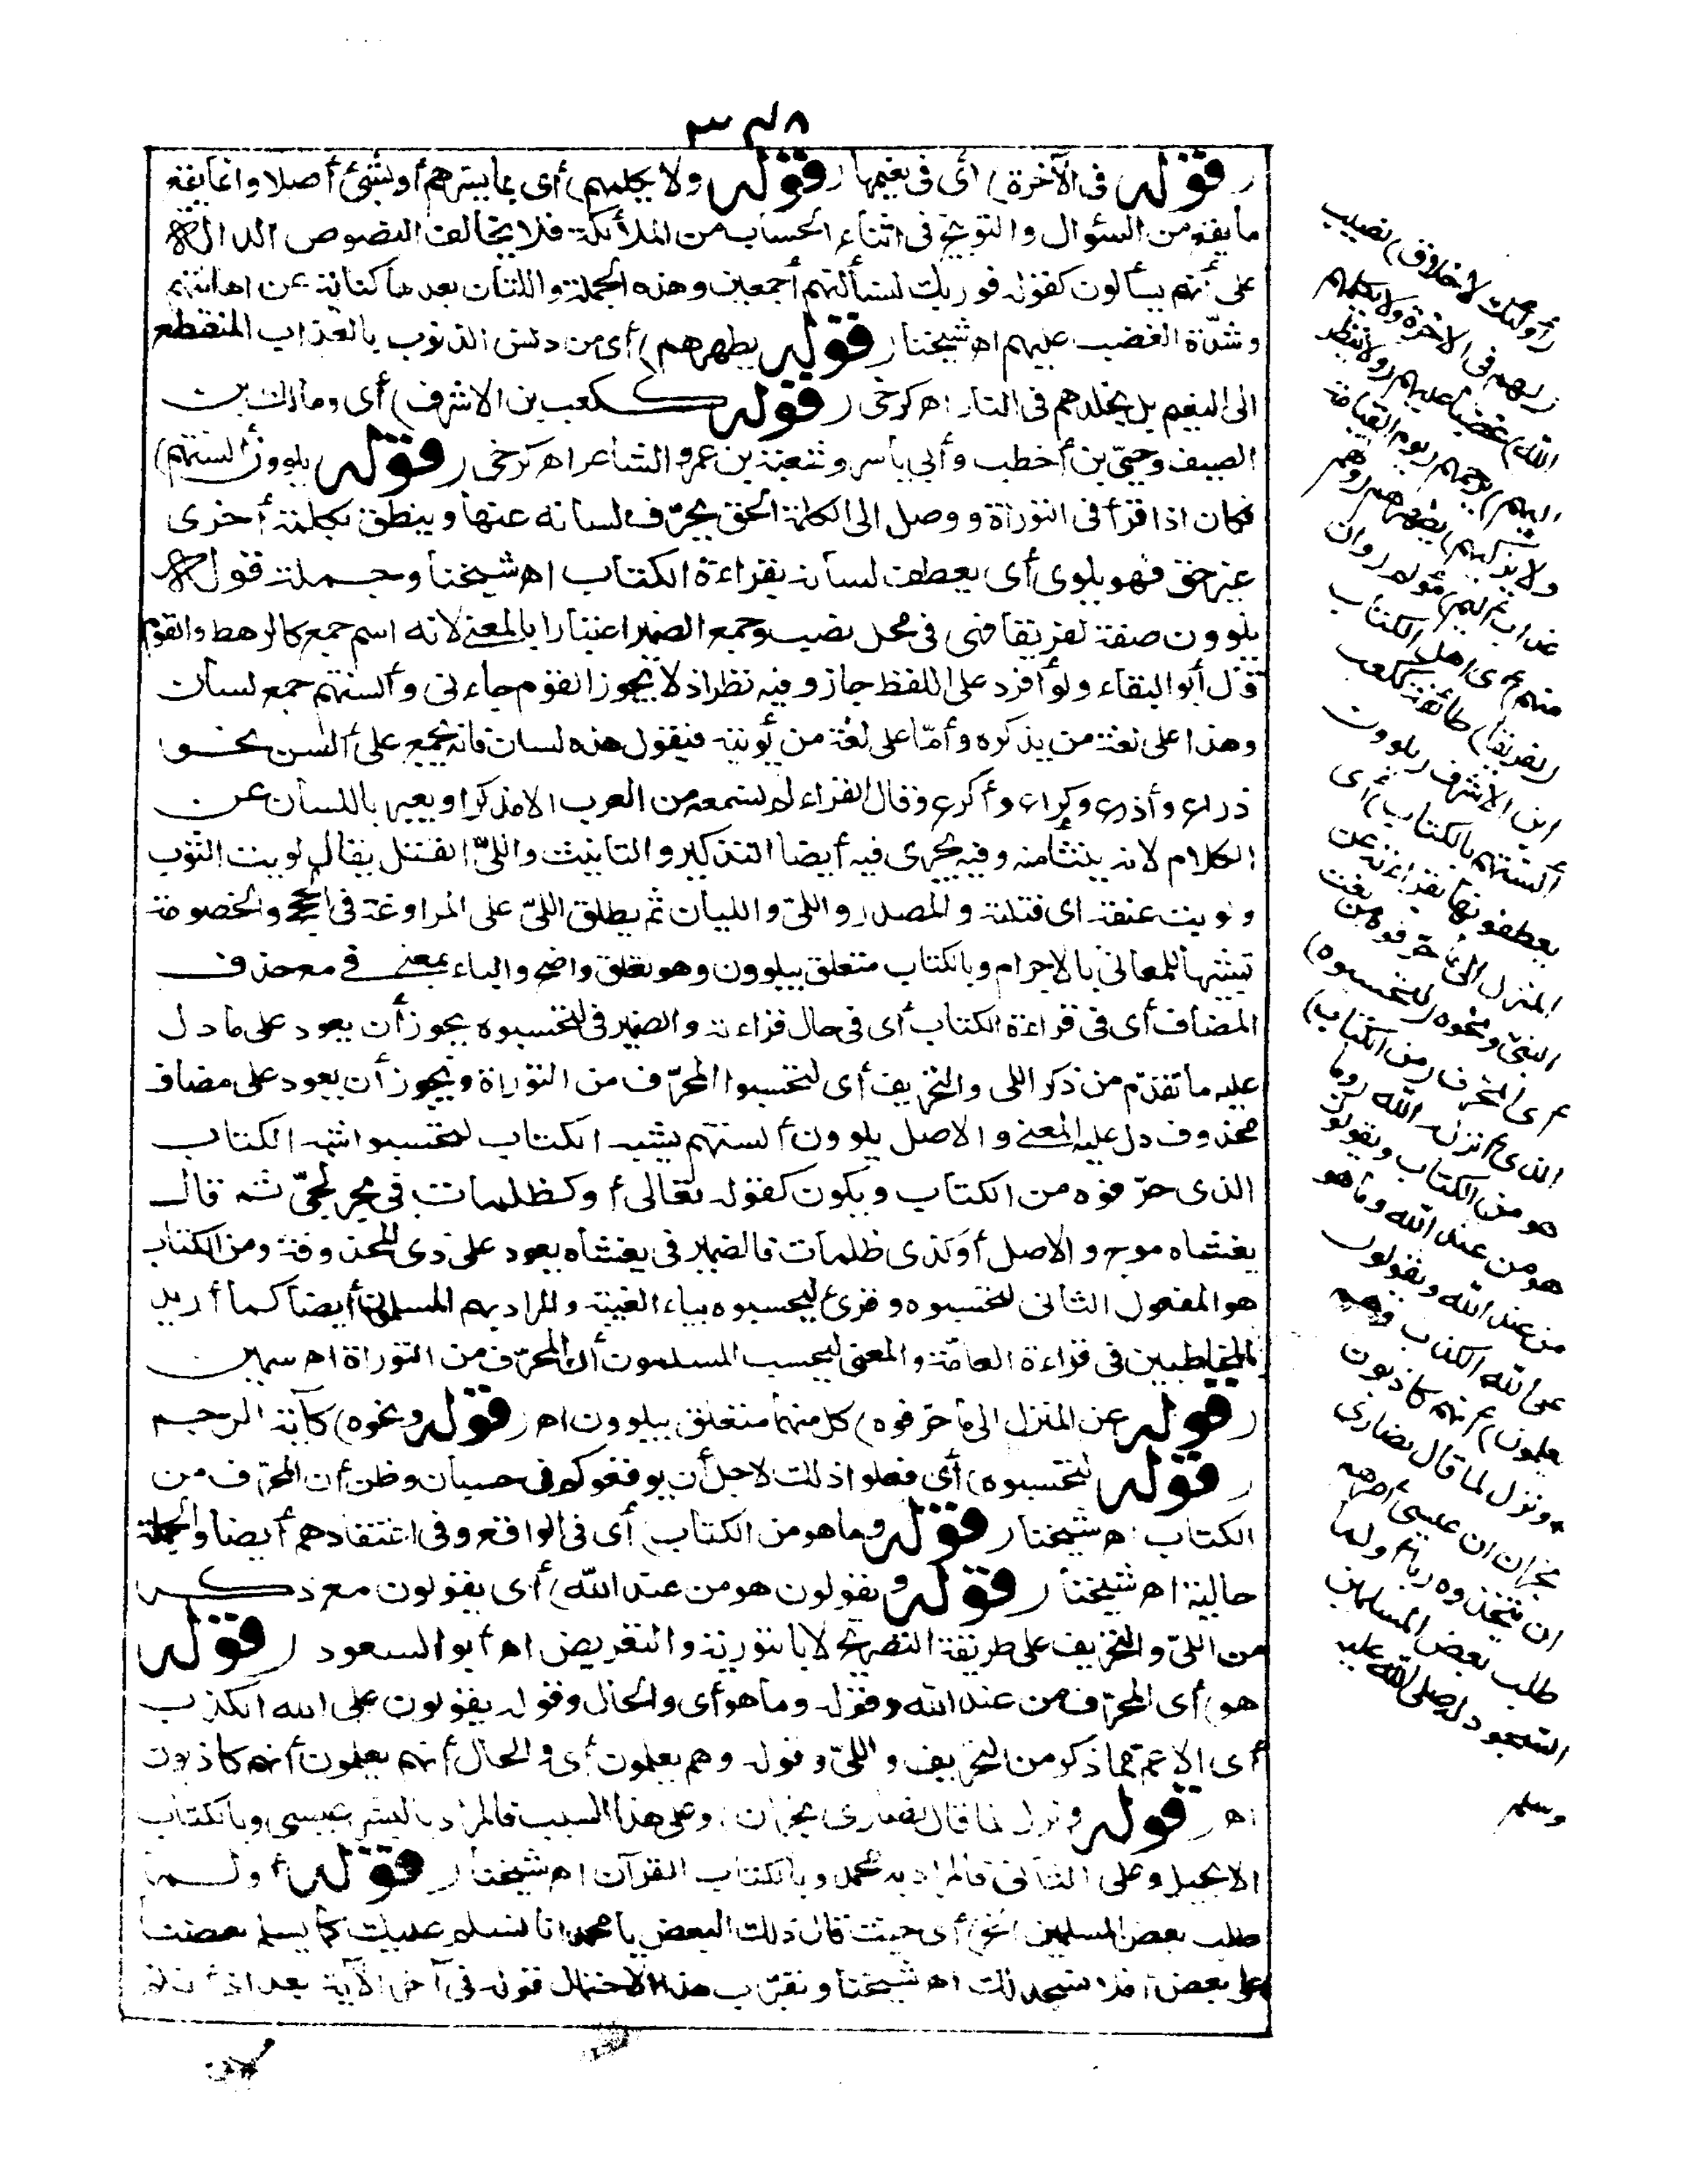 ٣٤٨
(قوله في الآخرة) أى فى نعيمها (قوله ولا يكلمهم) أى بما يسرهم أو بشئ أصلا وانما يقع
ما يقع من السؤال والتوبيخ فى اثناء الحساب من الملائكة فلا يخالف النصوص الدالة
على أنهم يسألون كقوله فوربك لنسألنهم أجمعين وهذه الجملة واللتان بعدها كناية عن اهانتهم
وشدّة الغضب عليهم اه شيخنا (قوله يطهرهم) أى من دنس الذنوب بالعذاب المنقطع
الى النعيم بل يخلدهم فى النار اه كرخى (قوله ككعب بن الاشرف) أى ومالك بن
الصيف وحيّى بن أخطب وأبي ياسر وشعبة بن عمرو الشاعر اه كرخى (قوله يلوون ألسنتهم)
فكان اذا قرأ فى التوراة ووصل الى الكلمة الحق يحرّف لسانه عنها وينطق بكلمة أخرى
غير حق فهو يلوى أى يعطف لسانه بقراءة الكتاب اه شيخنا وجملة قوله
يلوون صفة لفريقا فهى فى محل نصب وجمع الضمير اعتبارا بالمعنى لانه اسم جمع كالرهط والقوم
قال أبو البقاء ولو أفرد على اللفظ جاز وفيه نظر اذ لا يجوز القوم جاءنى وألسنتهم جمع لسان
وهذا على لغة من يذكره وأمّا على لغة من يؤنثه فيقول هذه لسان فانه يجمع على ألسن نحو
ذراع وأذرع وكراع وأكرع وقال الفراء لم نسمعه من العرب الا مذكرا ويعبر باللسان عن
الكلام لانه ينشأ منه وفيه يجرى فيه أيضا التذكير والتأنيث واللىّ الفتل يقال لويت الثوب
ولويت عنقه اى فتلته والمصدر اللىّ والليان ثم يطلق اللىّ على المراوغة فى الحجج والخصومة
تشبيها للمعانى بالاجرام وبالكتاب متعلق بيلوون وهو تعلق واضح والباء بمعنى فى مع حذف
المضاف أى فى قراءة الكتاب أى فى حال قراءته والضمير فى لتحسبوه يجوز أن يعود على ما دل
عليه ما تقدّم من ذكر اللى والتحريف أى لتحسبوا المحرّف من التوراة ويجوز أن يعود على مضاف
محذوف دل عليه المعنى والاصل يلوون ألسنتهم بشبه الكتاب لتحسبوا شبه الكتاب
الذى حرّفوه من الكتاب ويكون كقوله تعالى أو كظلمات فى بحر لجىّ ثم قال
يغشاه موج والاصل أو كذى ظلمات فالضمير فى يغشاه يعود على ذى المحذوفة ومن الكتاب
هو المفعول الثانى لتحسبوه وقرئ ليحسبوه بياء الغيبة والمراد بهم المسلمون أيضا كما أريد
بالمخاطبين فى قراءة العامّة والمعنى ليحسب المسلمون أن المحرّف من التوراة اه سمين
(قوله عن المنزل الى ما حرّفوه) كل منهما متعلق بيلوون اه (قوله ونحوه) كآية الرجم
(قوله لتحسبوه) أى فعلوا ذلك لاجل أن يوقعوكم فى حسبان وظن أن المحرّف من
الكتاب اه شيخنا (قوله وما هو من الكتاب) أى فى الواقع وفى اعتقادهم أيضا والجملة
حالية اه شيخنا (قوله ويقولون هو من عند الله) أى يقولون مع ذكر
من اللىّ والتحريف على طريقة التصريح لا بالتورية والتعريض اه أبو السعود (قوله
هو) أى المحرّف من عند الله وقوله وما هو أى والحال وقوله يقولون على الله الكذب
أى الاعم مما ذكر من التحريف واللىّ وقوله وهم يعلمون أى والحال أنهم يعلمون أنهم كاذبون
اه (قوله ونزل لما قال نصارى نجران) وعلى هذا السبب فالمراد بالبشر عيسى وبالكتاب
الانجيل وعلى الثانى فالمراد به محمد وبالكتاب القرآن اه شيخنا (قوله أو لما
طلب بعض المسلمين الخ) أى حيث قال ذلك البعض يا محمد انا نسلم عليك كما يسلم بعضنا
على بعض أفلا نسجد لك اه شيخنا ويقرّب هذا الاحتمال قوله فى آخر الآية بعد اذ أنتم
(أولئك لا خلاق) نصيب
(لهم فى الآخرة ولا يكلمهم
الله) غضبا عليهم (ولا ينظر
اليهم) يرحمهم (يوم القيامة
ولا يزكيهم) يطهرهم (ولهم
عذاب أليم) مؤلم (وان
منهم) أى أهل الكتاب
(لفريقا) طائفة ككعب
ابن الاشرف (يلوون
ألسنتهم بالكتاب) أى
يعطفونها بقراءته عن
المنزل الى ما حرّفوه من نعت
النبى ونحوه (لتحسبوه)
أى المحرّف (من الكتاب)
الذى أنزل الله (وما
هو من الكتاب ويقولون
هو من عند الله وما هو
من عند الله ويقولون
على الله الكذب وهم
يعلمون) أنهم كاذبون
* ونزل لما قال نصارى
نجران ان عيسى أمرهم
ان يتخذوه ربا أو لما
طلب بعض المسلمين
السجود له صلى الله عليه
وسلم